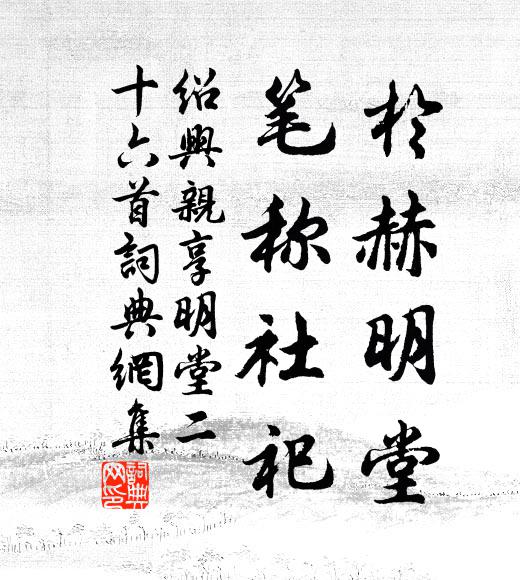 於赫明堂
笔称社祀
绍興親享明堂二
十六首詞典網集
詞典
网印